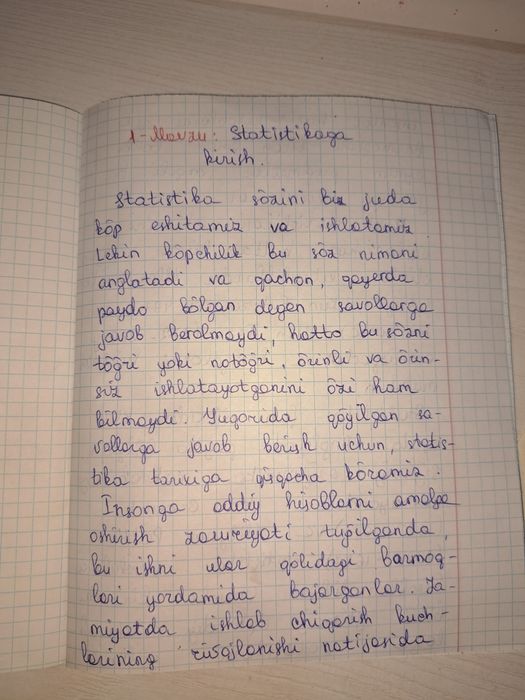 1-Mavzu: Statistikaga
kirish.
Statistika sõzini biz juda
kõp eshitamiz va ishlatamiz.
Lekin kõpchilik bu sõz nimani
anglatadi va qachon, qayerda
paydo bõlgan degan savollarga
javob berolmaydi, hatto bu sõzni
tõg̃ri yoki notõg̃ri, õrinli va õrin-
siz ishlatayotganini õzi ham
bilmaydi. Yuqorida qõyilgan sa-
vollarga javob berish uchun, statis-
tika tarixiga qisqacha kõramiz.
Insonga oddiy hisoblarni amalga
oshirish zaruriyati tug̃ilganda,
bu ishni ular qõlidagi barmoq-
lari yordamida bajarganlar. Ja-
miyatda ishlab chiqarish kuch-
larining rivojlanishi natijasida